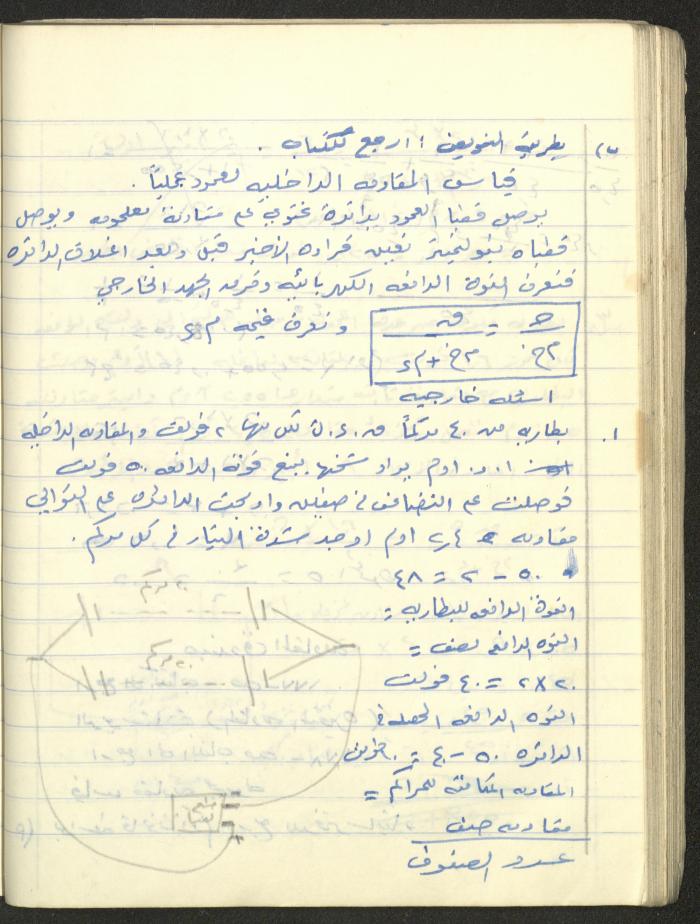 ٣) بطريقة التعويض : ارجع للكتاب .
قياس المقاومه الداخليه لعمود عملياً .
يوصل قطبا العمود بدائرة تحتوي على مقاومة معلومه ويوصل
قطباه بفولتميتر نعين قراءة الأخير قبل وبعد اغلاق الدائره
فنعرف القوة الدافعه الكهربائيه وفرق الجهد الخارجي
ونعرف قيمه م د
حـ / م خ = ق / م خ + م د
اسئله خارجيه
١. بطاريه من ٤٠ مركماً ق.د.ك لكل منها ٢ فولت والمقاومه الداخليه
٠١ر٠ اوم يراد شحنها بمنبع قوته الدافعه ٥٠ فولت
فوصلت على التضاعف في صفين وادمجت الدائره على التوالي
مقاومه ٤ر٢ اوم اوجد شدة التيار في كل مركم .
٥٠ - ٢ = ٤٨
القوة الدافعه للبطاريه =
القوه الدافعه لصف =
٢٠ × ٢ = ٤٠ فولت
القوه الدافعه المحصله في
الدائره ٥٠ - ٤٠ = ١٠ فولت
المقاومه المكافئه للمراكم =
مقاومه صف
عدد الصفوف
٢٠ مركم
٢٠ مركم